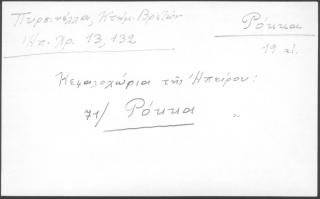 Πυρσινέλλα, Κτήμ. Βρετών
Ἠπ. Χρ. 13, 132
Ρόκκα
19 αἰ.
Κεφαλοχώρια τῆς Ἠπείρου:
71/ Ρόκκα "